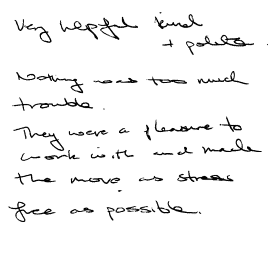 Very helpful kind
+ polite.
Nothing was too much
trouble.
They were a pleasure to
work with and made
the move as stress
free as possible.